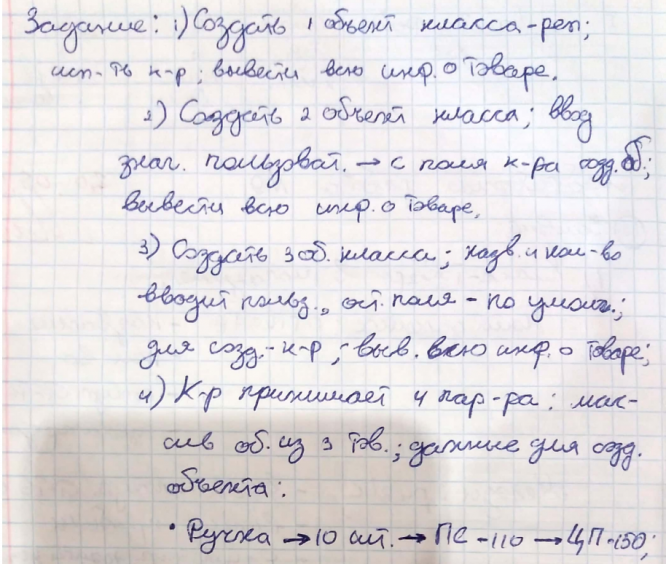 Задание: 1) Создать 1 объект класса-реп;
исп-ть к-р; вывести всю инф. о товаре.
2) Создать 2 объект класса; ввод
знач. пользоват. → с поля к-ра созд. об.;
вывести всю инф. о товаре.
3) Создать 3 об. класса; назв. и кол-во
вводит польз., ост. поля - по умолч.;
для созд. - к-р; - выв. всю инф. о товаре;
4) К-р принимает 4 пар-ра: мас-
сив об. из 3 тов.; данные для созд.
объекта:
• Ручка → 10 шт. → ПС - 110 → ЦП - 150;